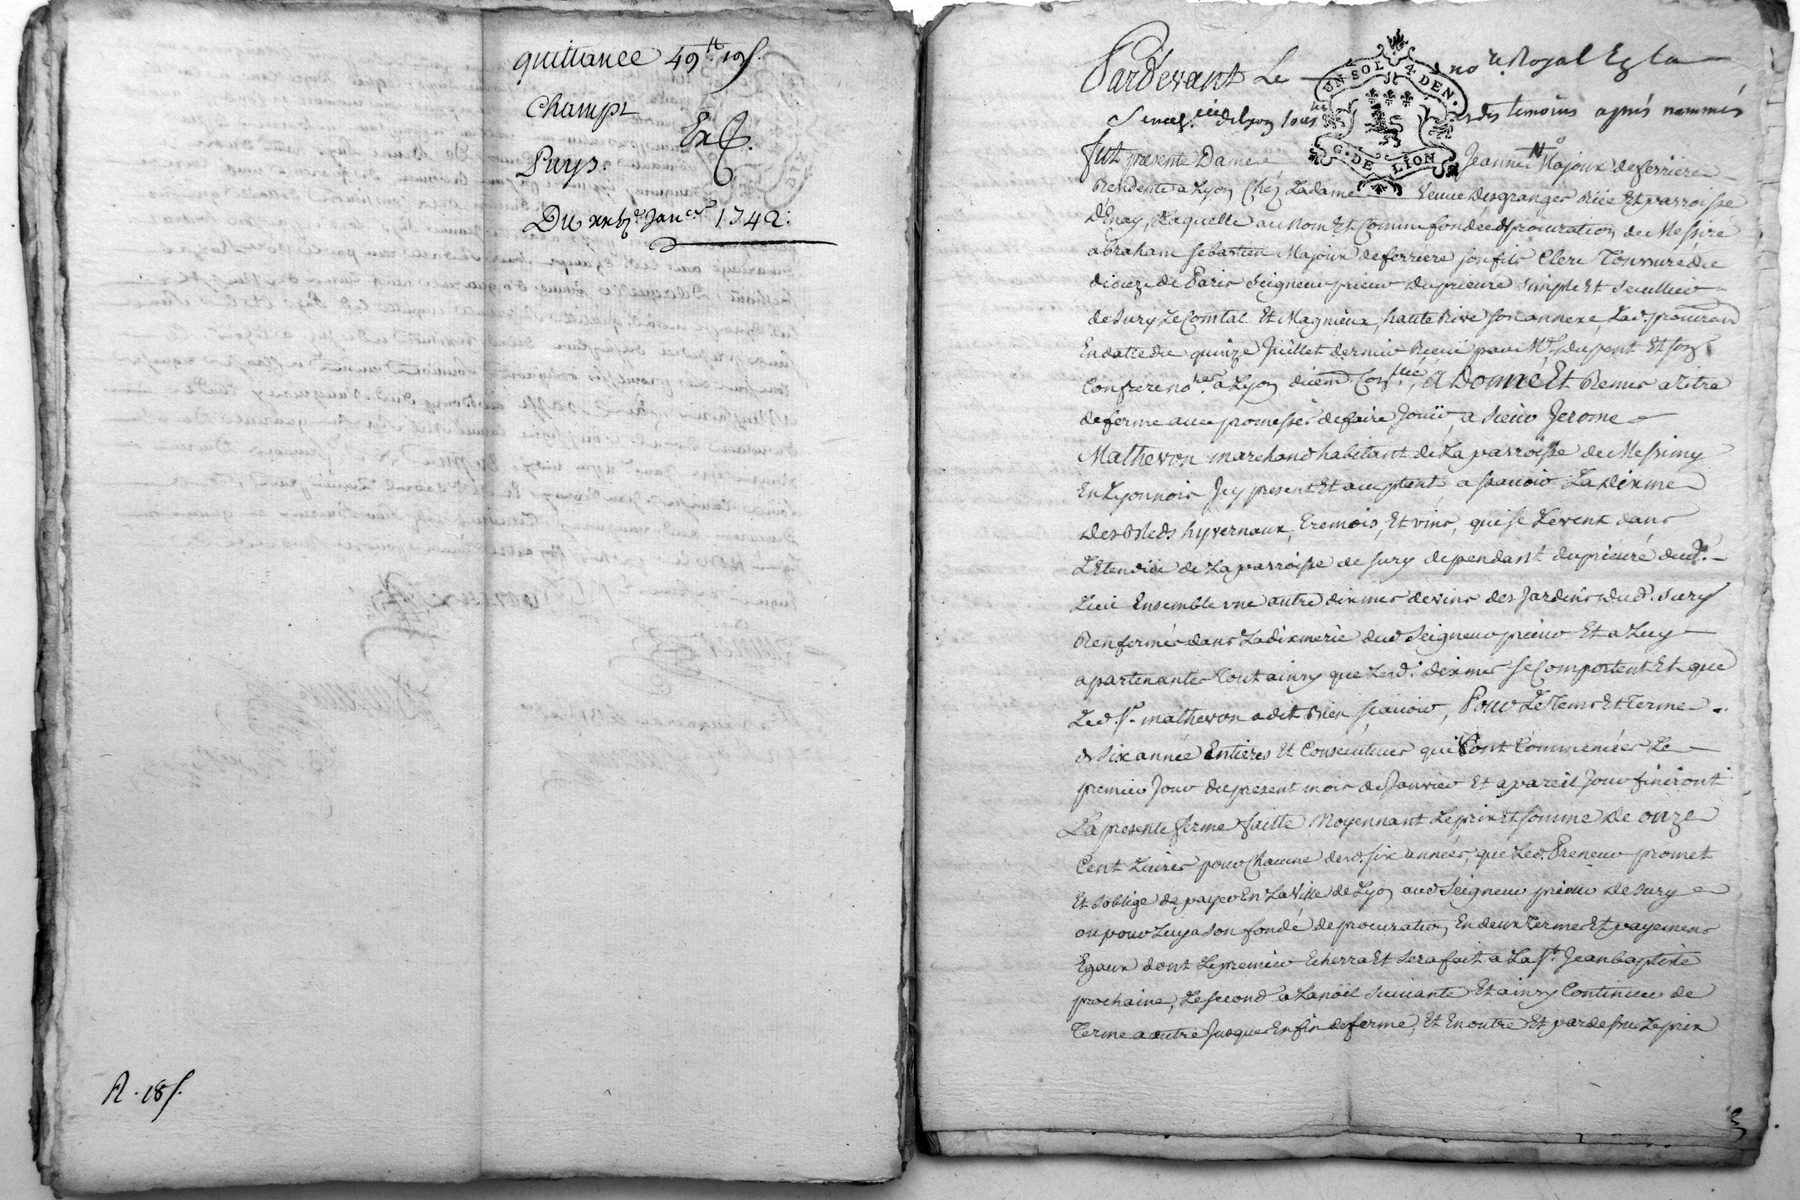 quittance 49ᵗᵗ 19ſ.
Champt
Exp.
Puys.
Du xxbᵉ Janᵉʳ 1742.
R. 18ſ.
Pardevant Le noʳᵉ Royal En la
UN SOL 4. DEN.
G. DE LION
Senesᶜᵉᵉ de Lyon et des temoins aprés nommés
fut presente Dame Jeanne Majoux de ferriere
Residente a Lyon Chéz La dame veuve Desgranges Rüe Et parroisse
D'Enay, Laquelle au Nom Et Comme fondée de procuration de Messire
abraham sebastien Majoux de ferriere son fils Clerc Tonsuré du
dioceze de Paris Seigneur prieur du prieuré simple Et seculier
de Sury Le Comtal Et Magnieux hauterive son annexe, Lad. procuraon
En datte du quinze Juillet dernier Reçeüe par Mᵉ Dupont Et son
Confrere noʳᵉˢ a Lyon, A Donné Et Remis a titre
de ferme avec promesses de faire Joüir, a sieur Jerome
Mathevon marchand habitant de La parroisse de Messimy
En Lyonnois Jcy present Et acceptant, a sçavoir La Dixme
Des Bleds hyvernaux, tremois, Et vins, qui se Levent dans
L'Etendüe de La parroisse de Sury dependant du prieuré dud.
Lieu Ensemble une autre dixme de vins des Jardins dud. Sury
Renfermés dans La dixmerie dud Seigneur prieur Et a Luy
apartenantes tout ainsy que Lesd. dixmes se Comportent Et que
Led Sʳ. mathevon a dit Bien sçavoir, Pour Le Tems Et Terme
de Six année Entieres Et Consecutives qui sont Commencées Le
premier Jour du present mois de Janvier Et a pareil Jour finiront
La presente ferme faitte Moyennant Le prix Et somme de onze
Cent Livres pour Chacune desd. six années, que Led. Preneur promet
Et s'oblige de payer En La ville de Lyon aud Seigneur prieur de Sury
ou pour Luy a son fondé de procuration, En deux Termes Et payemens
Egaux dont Le premier Echerra Et Sera fait a La Sᵗ. Jean baptiste
prochaine, Le second a La noël suivante Et ainsy Continuer de
Terme a autre Jusques En fin de ferme, Et En outre Et par dessus Le prix